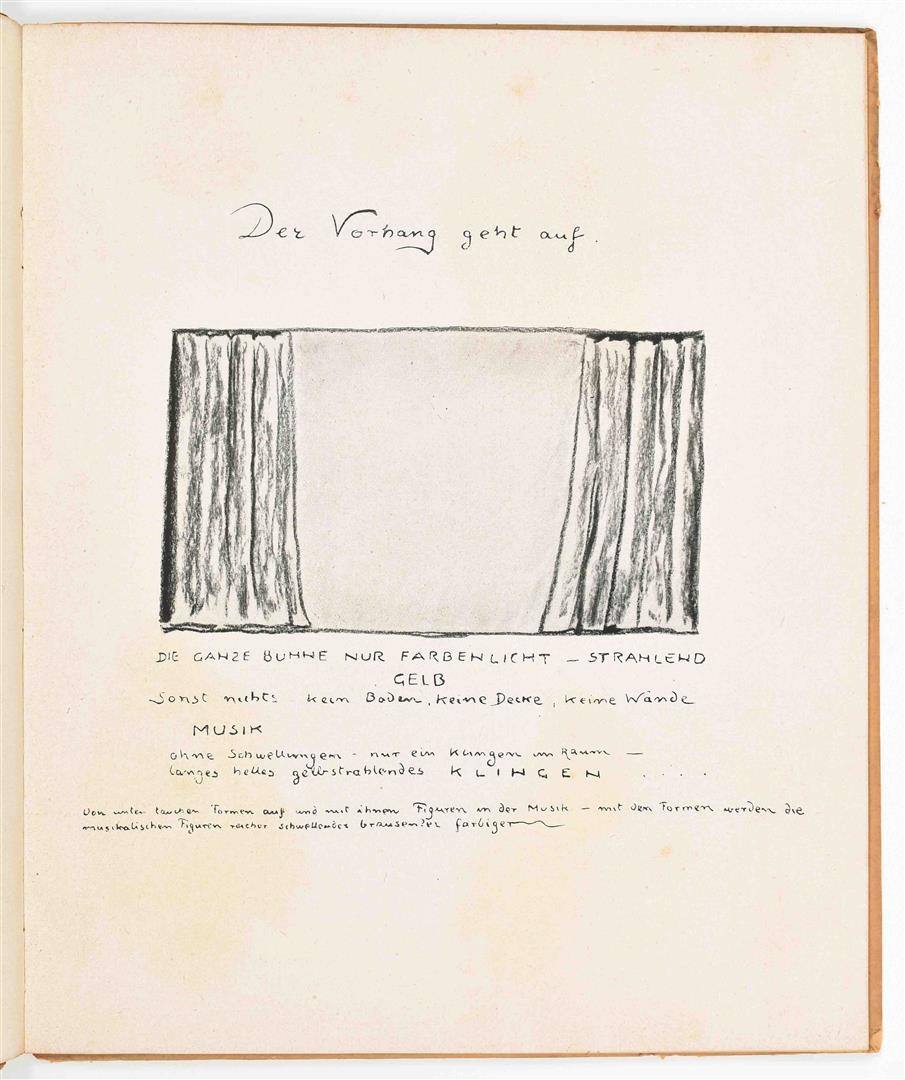 Der Vorhang geht auf.
DIE GANZE BÜHNE NUR FARBENLICHT – STRAHLEND
GELB
Sonst nichts kein Boden, keine Decke, keine Wände
MUSIK
ohne Schwellungen – nur ein Klingen im Raum –
langes helles gelbstrahlendes KLINGEN ....
Von unten tauchen Formen auf und mit ihnen Figuren in der Musik – mit den Formen werden die
musikalischen Figuren reicher schwellender brausender farbiger